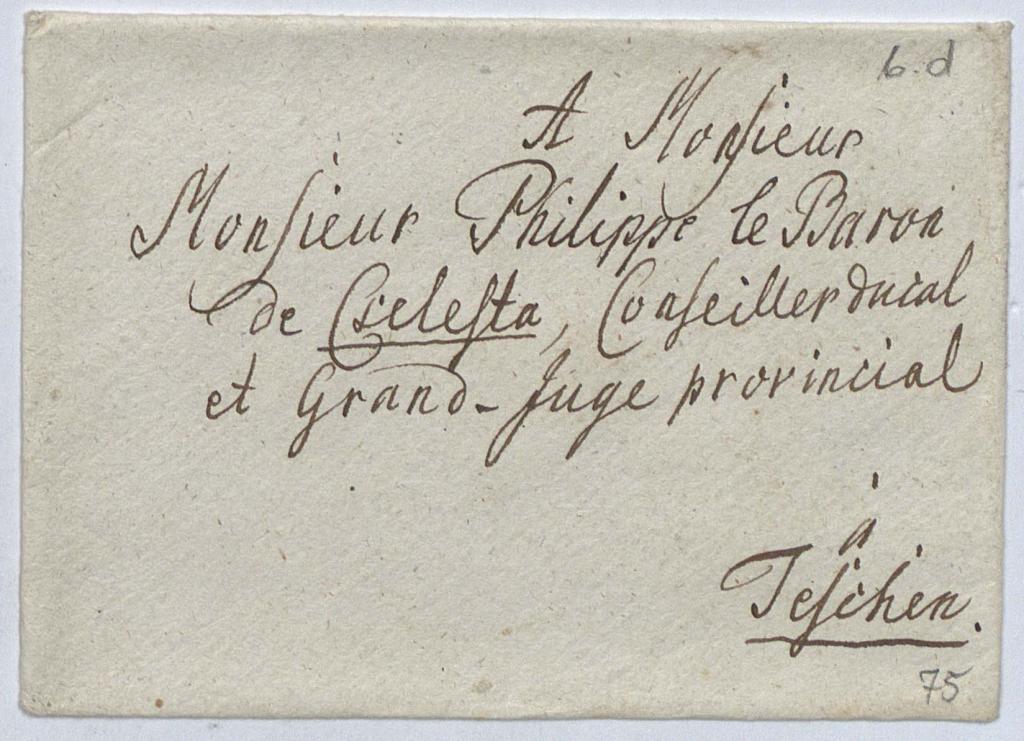 6. d
A Monsieur
Monsieur Philippe le Baron
de Cselesta, Conseiller ducal
et Grand-Juge provincial
à
Teschen.
75